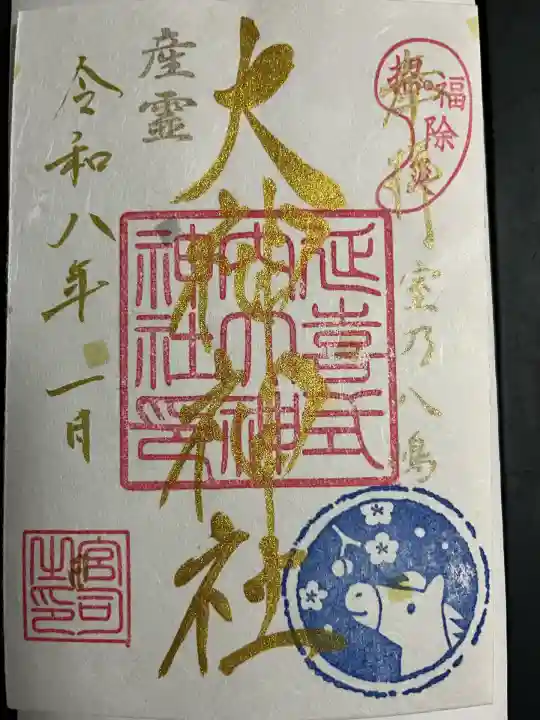 奉拝
室乃八嶋
大神神社
産霊
令和八年一月
延喜式
内大神
神社印
宮司
之印
福
除